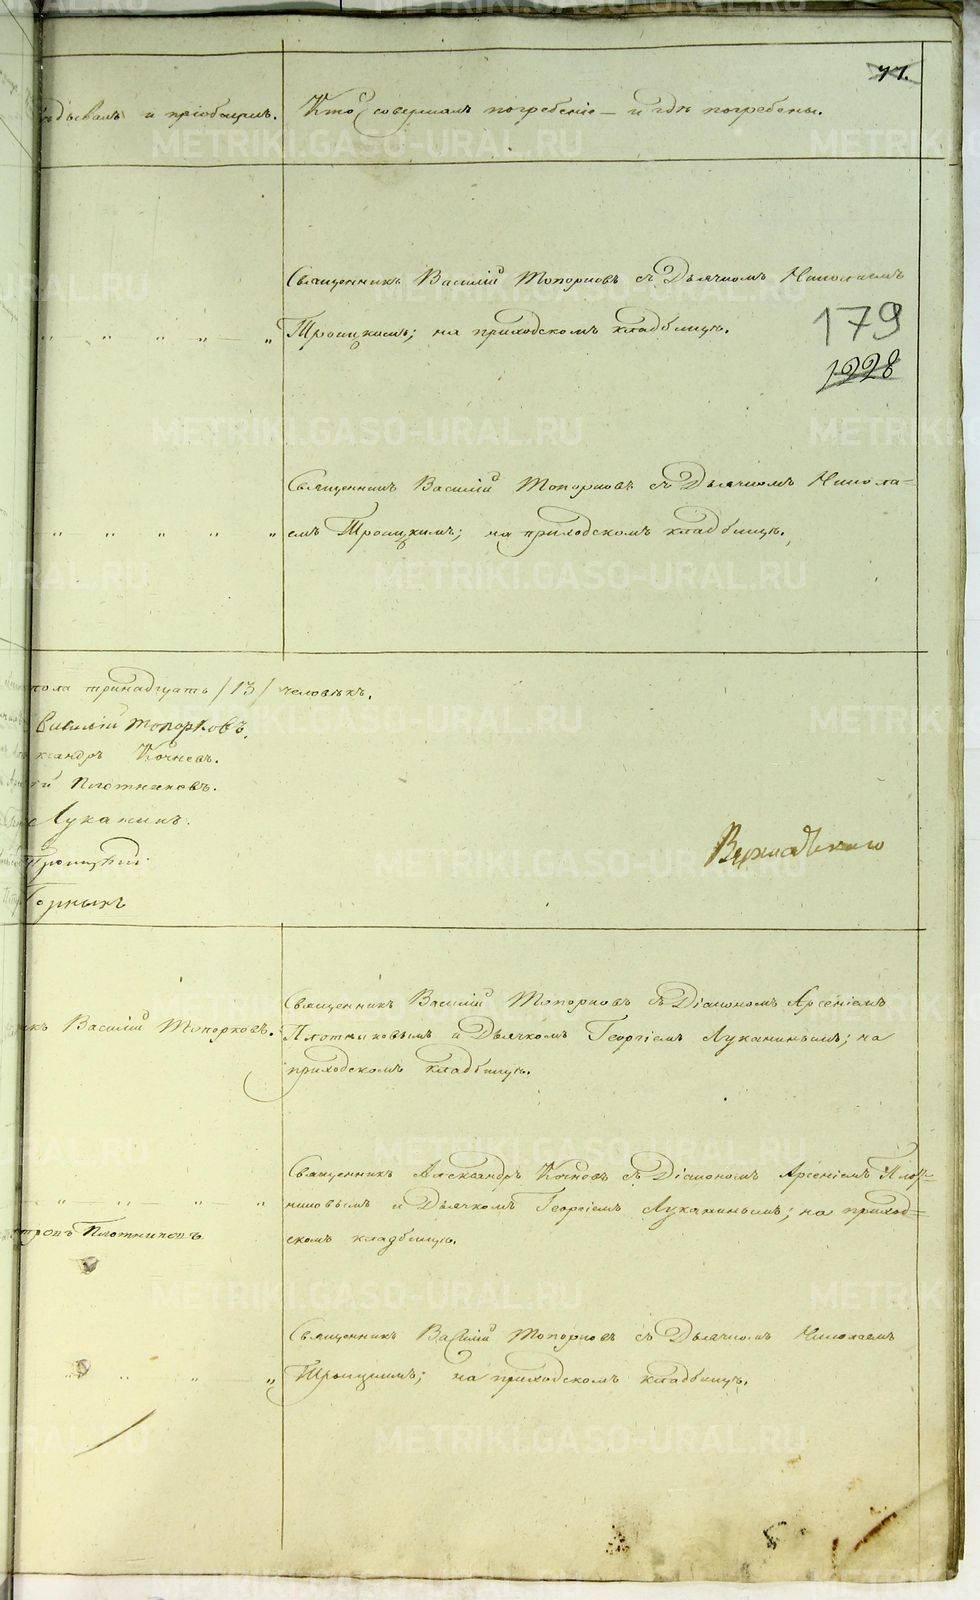 77.
и пріобщилъ. Кто совершалъ погребеніе – и гдѣ погребены.
Священникъ Василій Топорковъ съ Дьячкомъ Николаемъ
Троицкимъ; на приходскомъ кладбищѣ.
179
1228
Священникъ Василій Топорковъ съ Дьячкомъ Никола-
емъ Троицкимъ; на приходскомъ кладбищѣ.
пола тринадцать /13/ человѣкъ.
Василій Топорковъ.
ксандръ Кочневъ.
ій Плотниковъ.
Луканинъ.
Троицкій.
Горныхъ
икъ Василій Топорковъ.
Священникъ Василій Топорковъ съ Діакономъ Арсеніемъ
Плотниковымъ и Дьячкомъ Георгіемъ Луканинымъ; на
приходскомъ кладбищѣ.
Священникъ Александръ Кочневъ съ Діакономъ Арсеніемъ Плот-
никовымъ и Дьячкомъ Георгіемъ Луканинымъ; на приход-
скомъ кладбищѣ.
тровъ Плотниковъ
Священникъ Василій Топорковъ съ Дьячкомъ Николаемъ
Троицкимъ; на приходскомъ кладбищѣ.
METRIKI.GASO-URAL.RU